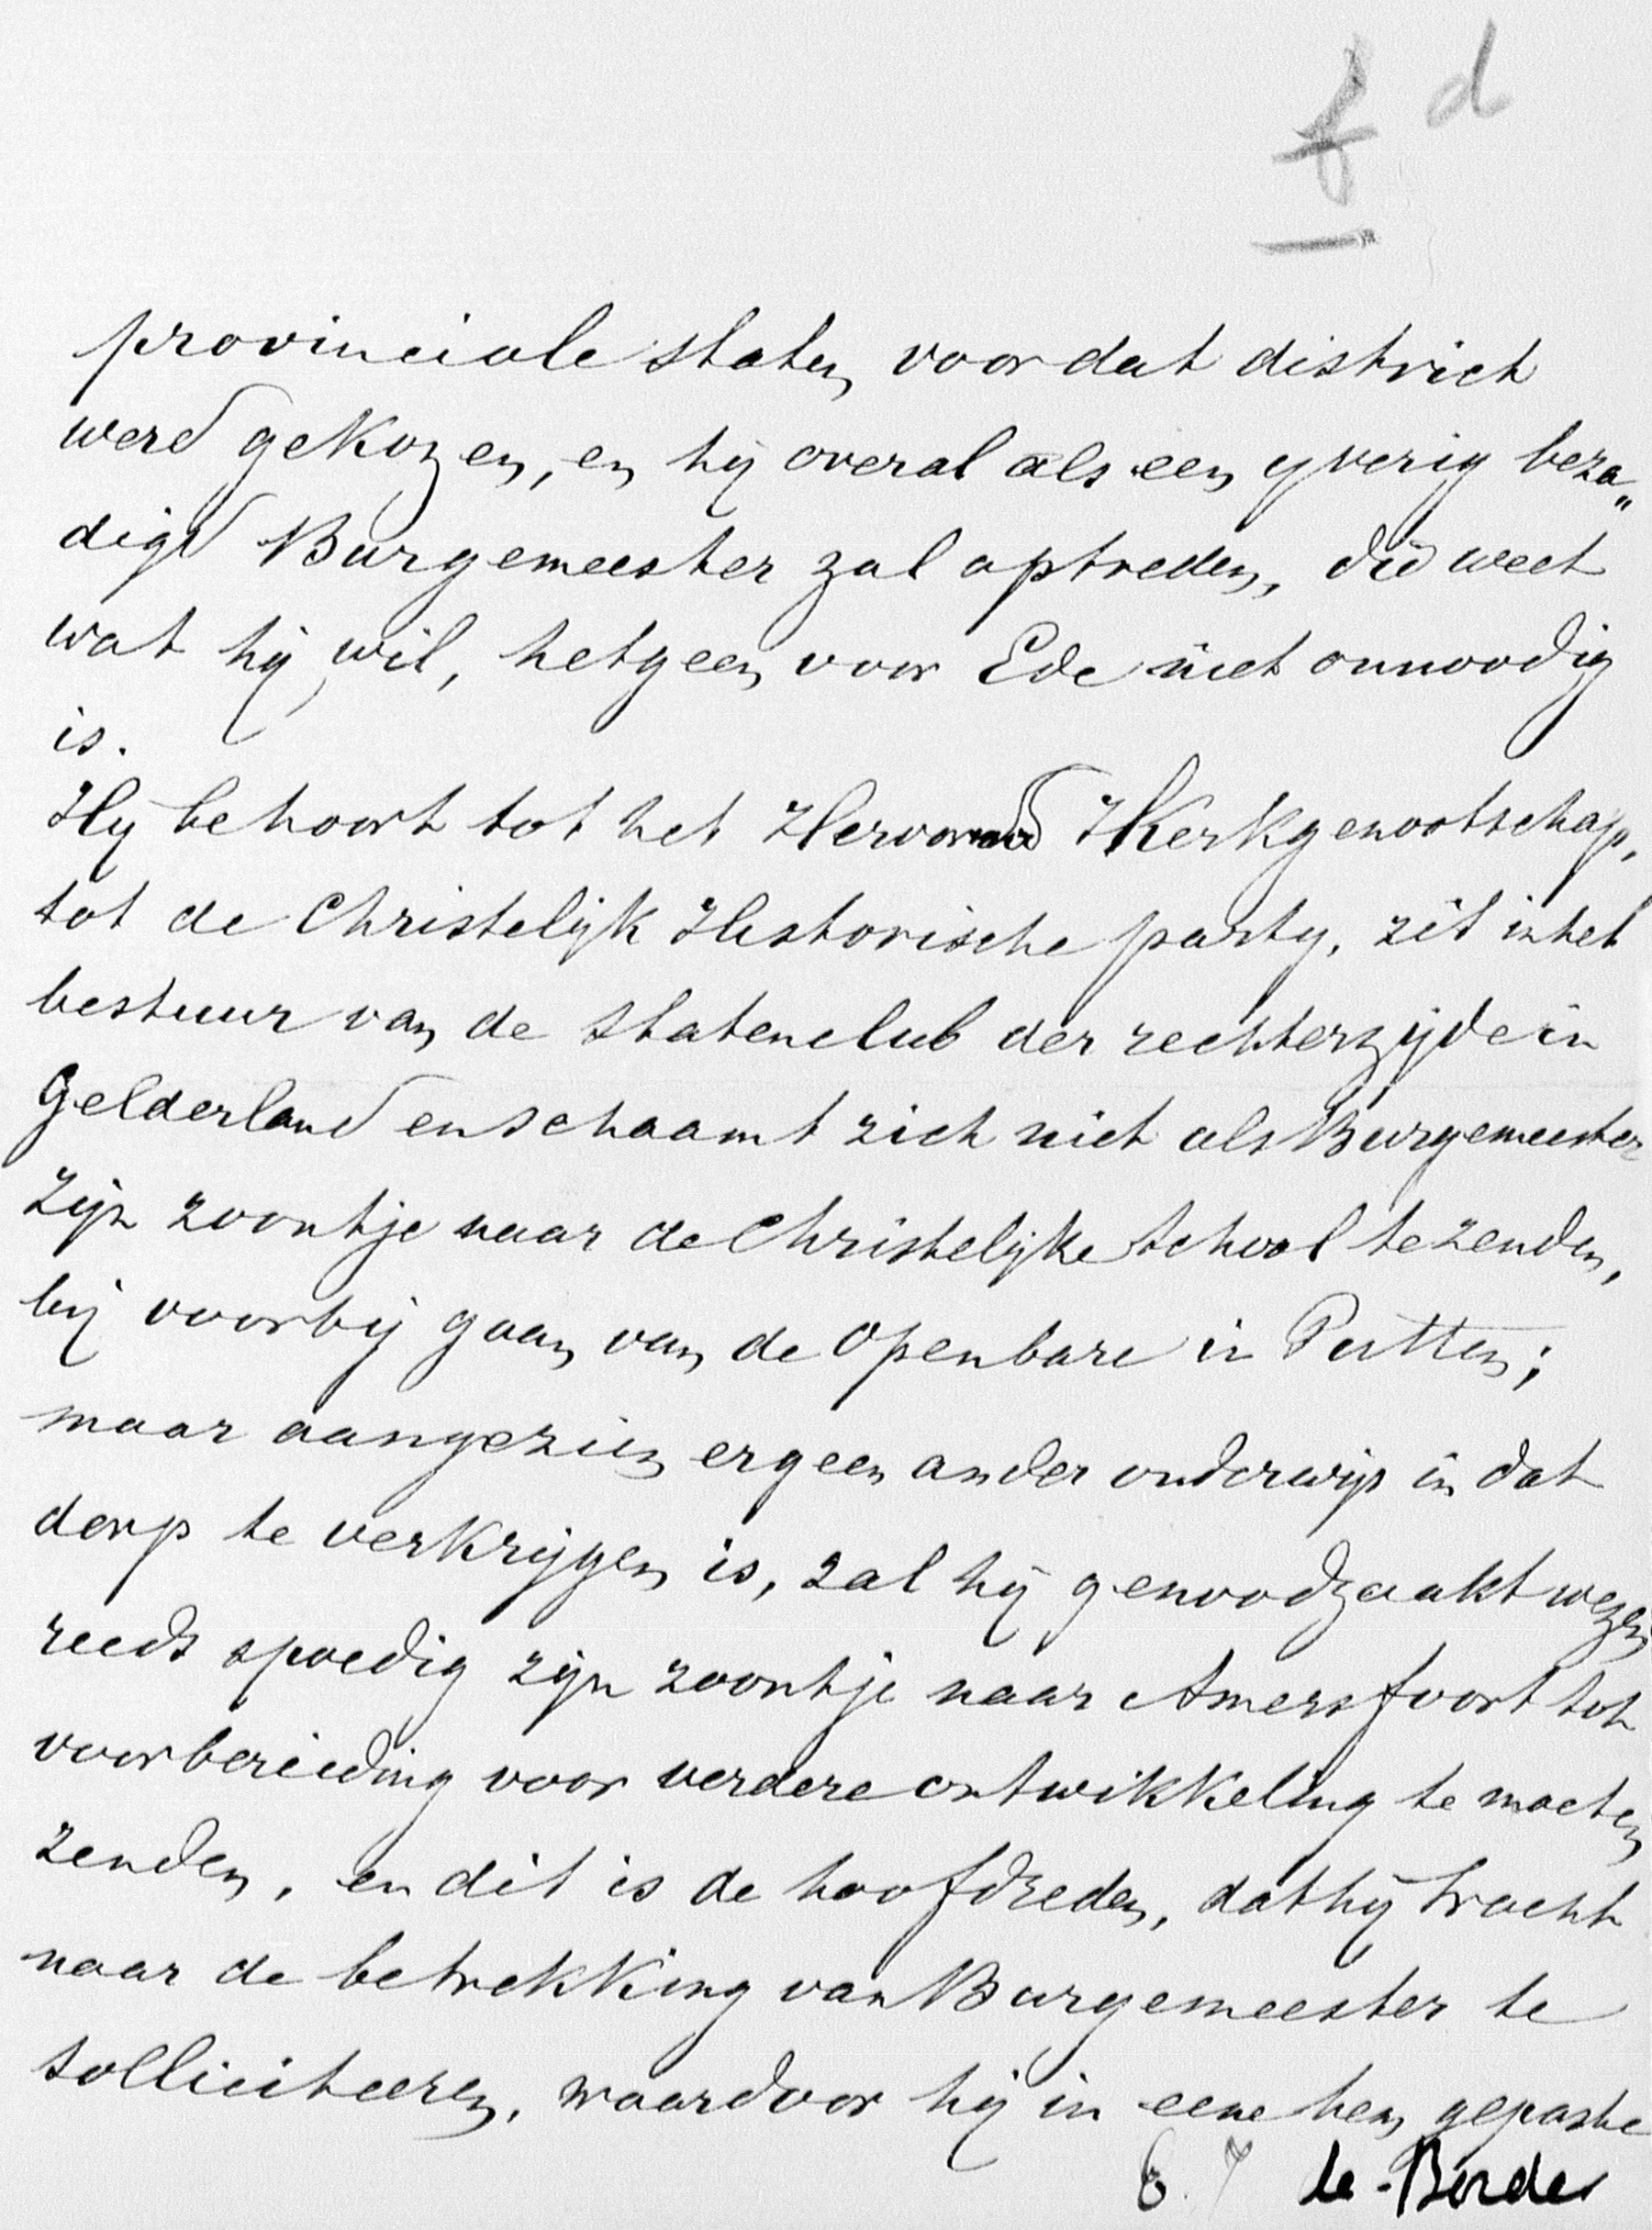 f d
provinciale staten voor dat district
werd gekozen, en hij overal als een yverig beza„
digd Burgemeester zal optreden, die weet
wat hij wil, hetgeen voor Ede niet onnoodig
is.
Hy behoort tot het Hervormd Kerkgenootschap,
tot de Christelijk Historische party, zit in het
bestuur van de statenclub der rechterzijde in
Gelderland en schaamt zich niet als Burgemeester
zijn zoontje naar de Christelijke school te zenden,
bij voorbij gaan van de Openbare in Putten;
maar aangezien er geen ander onderwijs in dat
dorp te verkrijgen is, zal hij genoodzaakt wezen
reeds spoedig zijn zoontje naar Amersfoort tot
voorbereiding voor verdere ontwikkeling te moeten
zenden, en dit is de hoofdreden, dat hij tracht
naar de betrekking van Burgemeester te
solliciteeren, waardoor hij in eene hem gepaste
de Borde